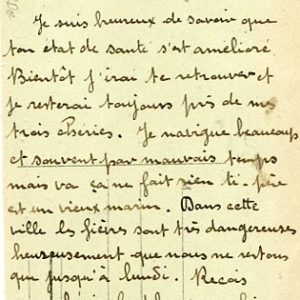 Je suis heureux de savoir que
ton état de santé s'est amélioré
Bientôt j'irai te retrouver et
je resterai toujours près de mes
trois chéries. Je navigue beaucoup
et souvent par mauvais temps
mais va ça ne fait rien té père
est un vieux marin. Dans cette
ville les fièvres sont très dangereuses
heureusement que nous ne restons
que jusqu'à lundi. Reçois